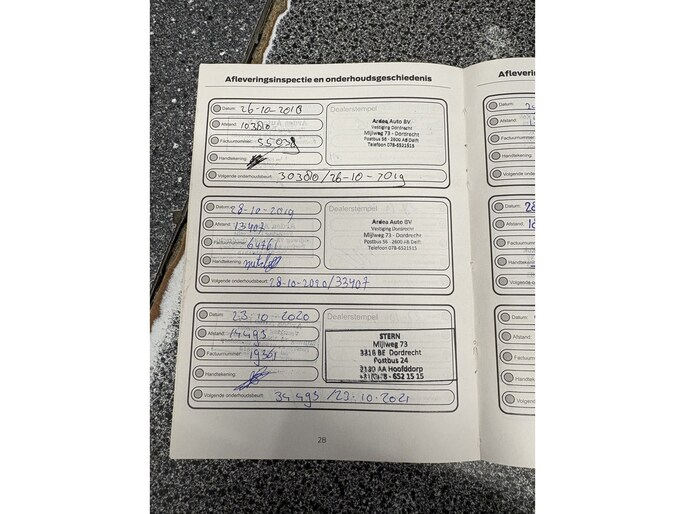 Afleveringsinspectie en onderhoudsgeschiedenis
Datum: 26-10-2018
Afstand: 10380
Factuurnummer: 55038
Handtekening:
Volgende onderhoudsbeurt: 30380/26-10-2019
Dealerstempel
Ardea Auto BV
Vestiging Dordrecht
Mijlweg 73 - Dordrecht
Postbus 56 - 2600 AB Delft
Telefoon 078-6521515
Datum: 28-10-2019
Afstand: 13407
Factuurnummer: 64761
Handtekening:
Volgende onderhoudsbeurt: 28-10-2020/33407
Dealerstempel
Ardea Auto BV
Vestiging Dordrecht
Mijlweg 73 - Dordrecht
Postbus 56 - 2600 AB Delft
Telefoon 078-6521515
Datum: 23-10-2020
Afstand: 14495
Factuurnummer: 19361
Handtekening:
Volgende onderhoudsbeurt: 34495/23-10-2021
Dealerstempel
STERN
Mijlweg 73
3316 BE Dordrecht
Postbus 24
2130 AA Hoofddorp
+31(0)78 - 652 15 15
28
Afleveri
Datum:
Afstand:
Factuurnummer
Handtekening
Volgende
Datum:
Afstand:
Factuurnummer
Handtekening
Volgende
Datum:
Afstand:
Factuurn
Handteke
Volgende